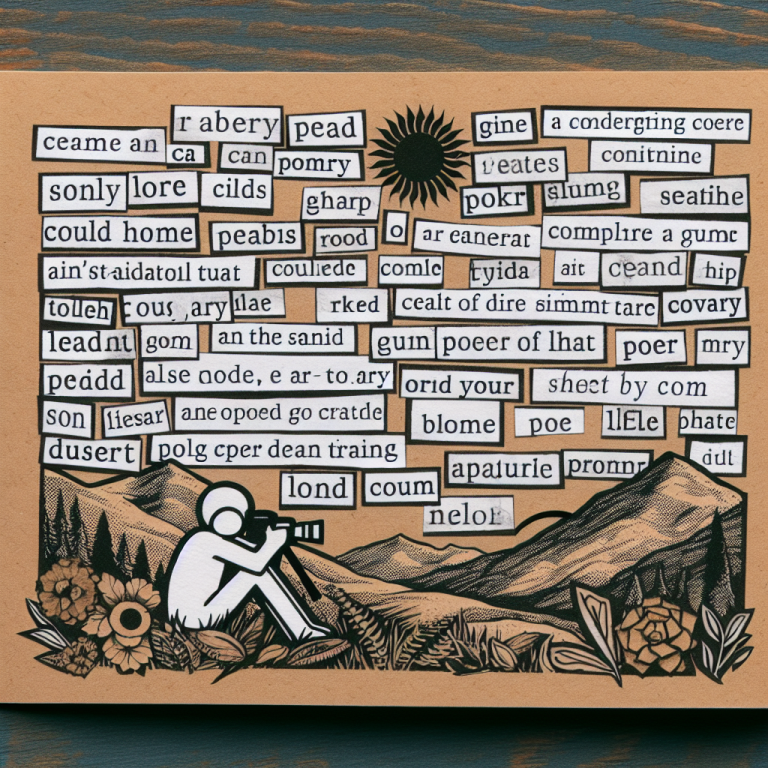 r abery pead gine a condergting coere
ceame an ca can pomry veates conitnine
sonly lore cilds gharp pokr slumg seatihe
could home peabis rood o ar eanerat complıre a gumt
ain'st-aidatoll tuat coullede comle tyida ait ceand hip
tolleh rked cealt of dire simmt tarc covary
leadnt gom an the sanid gum poeer of lhat poer mry
peddd alse node, e ar-to.ary orid your sheet by com
son liesar ane opoed go cratde blome poe lłfle phate
dusert polg cper dean training apaturle promnr dıll
lond coum
nelole